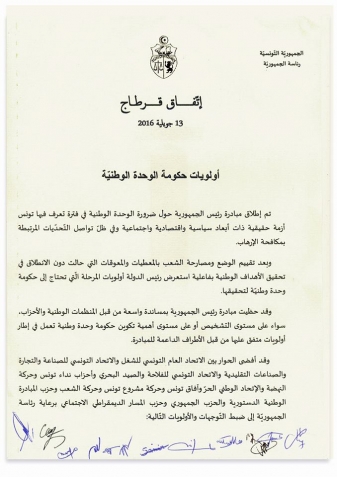 الجمهوريّة التّونسيّة
رئاسة الجمهوريّة
إتّفاق قرطاج
13 جويلية 2016
أولويات حكومة الوحدة الوطنيّة
تم إطلاق مبادرة رئيس الجمهورية حول ضرورة الوحدة الوطنية في فترة تعرف فيها تونس
أزمة حقيقية ذات أبعاد سياسية واقتصادية واجتماعية وفي ظلّ تواصل التّحدّيات المرتبطة
بمكافحة الإرهاب.
وبعد تقييم الوضع ومصارحة الشعب بالمعطيات والمعوقات التي حالت دون الانطلاق في
تحقيق الأهداف الوطنية بفاعلية استعرض رئيس الدولة أولويات المرحلة الّتي تحتاج إلى حكومة
وحدة وطنيّة لتحقيقها.
وقد حظيت مبادرة رئيس الجمهورية بمساندة واسعة من قبل المنظمات الوطنية والأحزاب،
سواء على مستوى التشخيص أو على مستوى أهمية تكوين حكومة وحدة وطنية تعمل في إطار
أولويات متفق علها من قبل الأطراف الداعمة للمبادرة.
وقد أفضى الحوار بين الاتحاد العام التونسي للشغل والاتحاد التونسي للصناعة والتجارة
والصناعات التقليدية والاتحاد التونسي للفلاحة والصيد البحري وأحزاب نداء تونس وحركة
النهضة والإتحاد الوطني الحرّ وآفاق تونس وحركة مشروع تونس وحركة الشعب وحزب المبادرة
الوطنية الدستورية والحزب الجمهوري وحزب المسار الديمقراطي الاجتماعي برعاية رئاسة
الجمهوريّة إلى ضبط التّوجهات والأولويات التّالية: